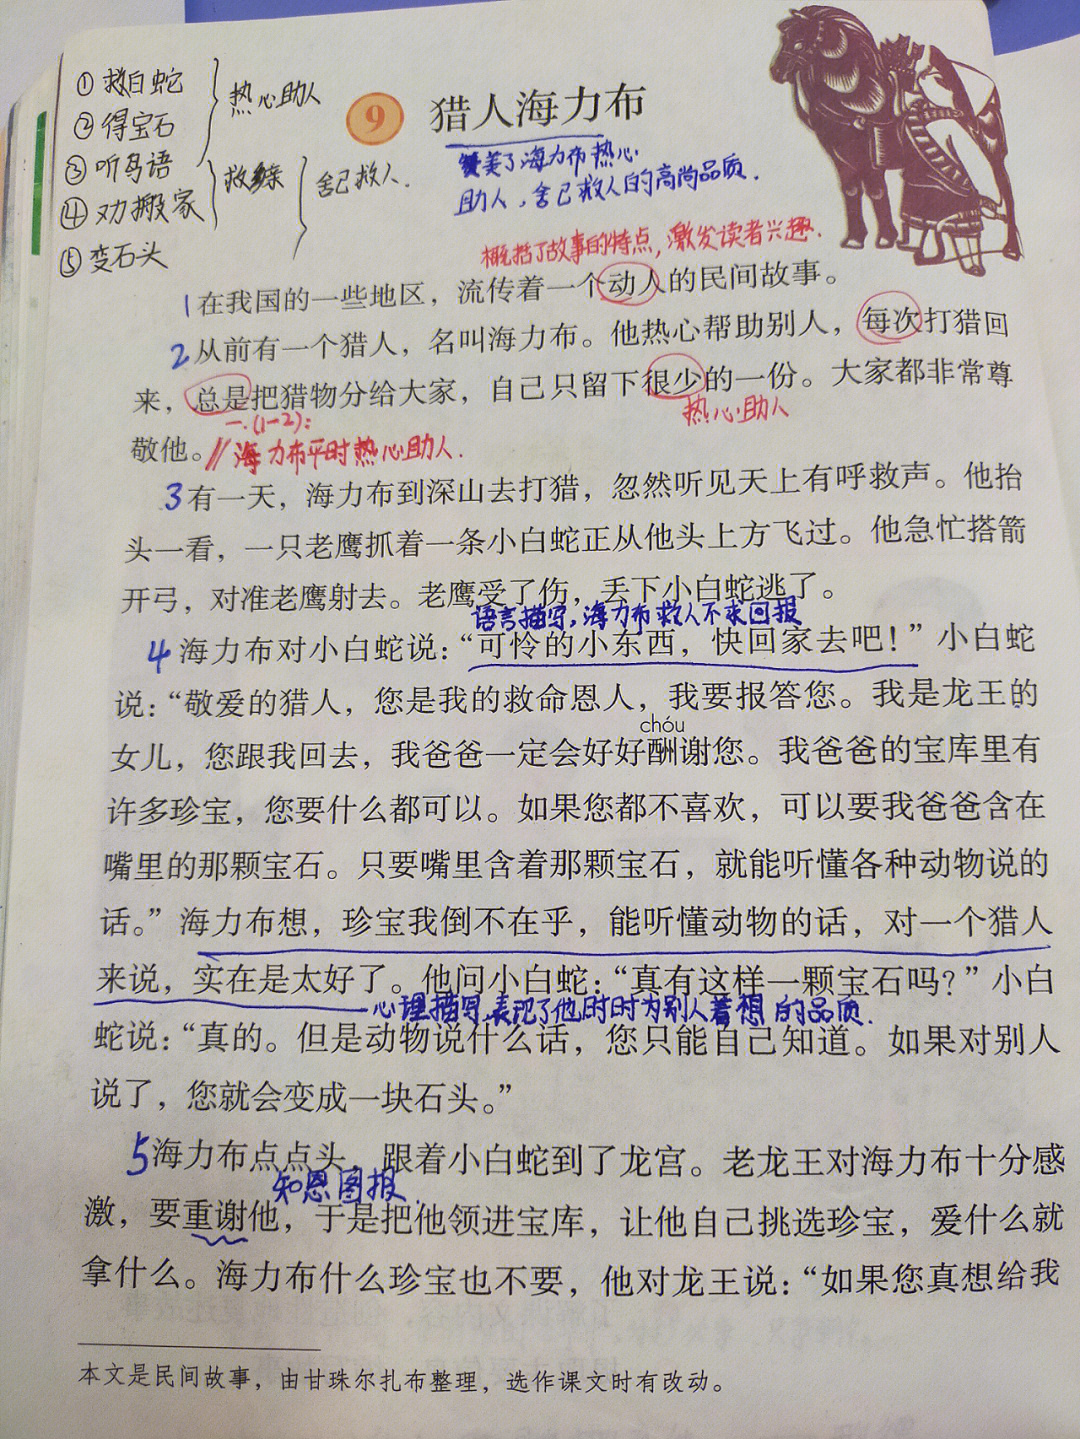 ①救白蛇
②得宝石
③听鸟语
④劝搬家
⑤变石头
热心助人
救乡亲
舍己救人.
9 猎人海力布
赞美了海力布热心
助人,舍己救人的高尚品质.
概括了故事的特点,激发读者兴趣.
1在我国的一些地区，流传着一个动人的民间故事。
2从前有一个猎人，名叫海力布。他热心帮助别人，每次打猎回
来，总是把猎物分给大家，自己只留下很少的一份。大家都非常尊
热心助人
一.(1-2):
敬他。
//海力布平时热心助人.
3有一天，海力布到深山去打猎，忽然听见天上有呼救声。他抬
头一看，一只老鹰抓着一条小白蛇正从他头上方飞过。他急忙搭箭
开弓，对准老鹰射去。老鹰受了伤，丢下小白蛇逃了。
语言描写,海力布救人不求回报
4海力布对小白蛇说：“可怜的小东西，快回家去吧！”小白蛇
说：“敬爱的猎人，您是我的救命恩人，我要报答您。我是龙王的
chóu
女儿，您跟我回去，我爸爸一定会好好酬谢您。我爸爸的宝库里有
许多珍宝，您要什么都可以。如果您都不喜欢，可以要我爸爸含在
嘴里的那颗宝石。只要嘴里含着那颗宝石，就能听懂各种动物说的
话。”海力布想，珍宝我倒不在乎，能听懂动物的话，对一个猎人
来说，实在是太好了。他问小白蛇：“真有这样一颗宝石吗？”小白
心理描写,表现了他时时为别人着想的品质.
蛇说：“真的。但是动物说什么话，您只能自己知道。如果对别人
说了，您就会变成一块石头。”
5海力布点点头，跟着小白蛇到了龙宫。老龙王对海力布十分感
知恩图报.
激，要重谢他，于是把他领进宝库，让他自己挑选珍宝，爱什么就
拿什么。海力布什么珍宝也不要，他对龙王说：“如果您真想给我
本文是民间故事，由甘珠尔扎布整理，选作课文时有改动。